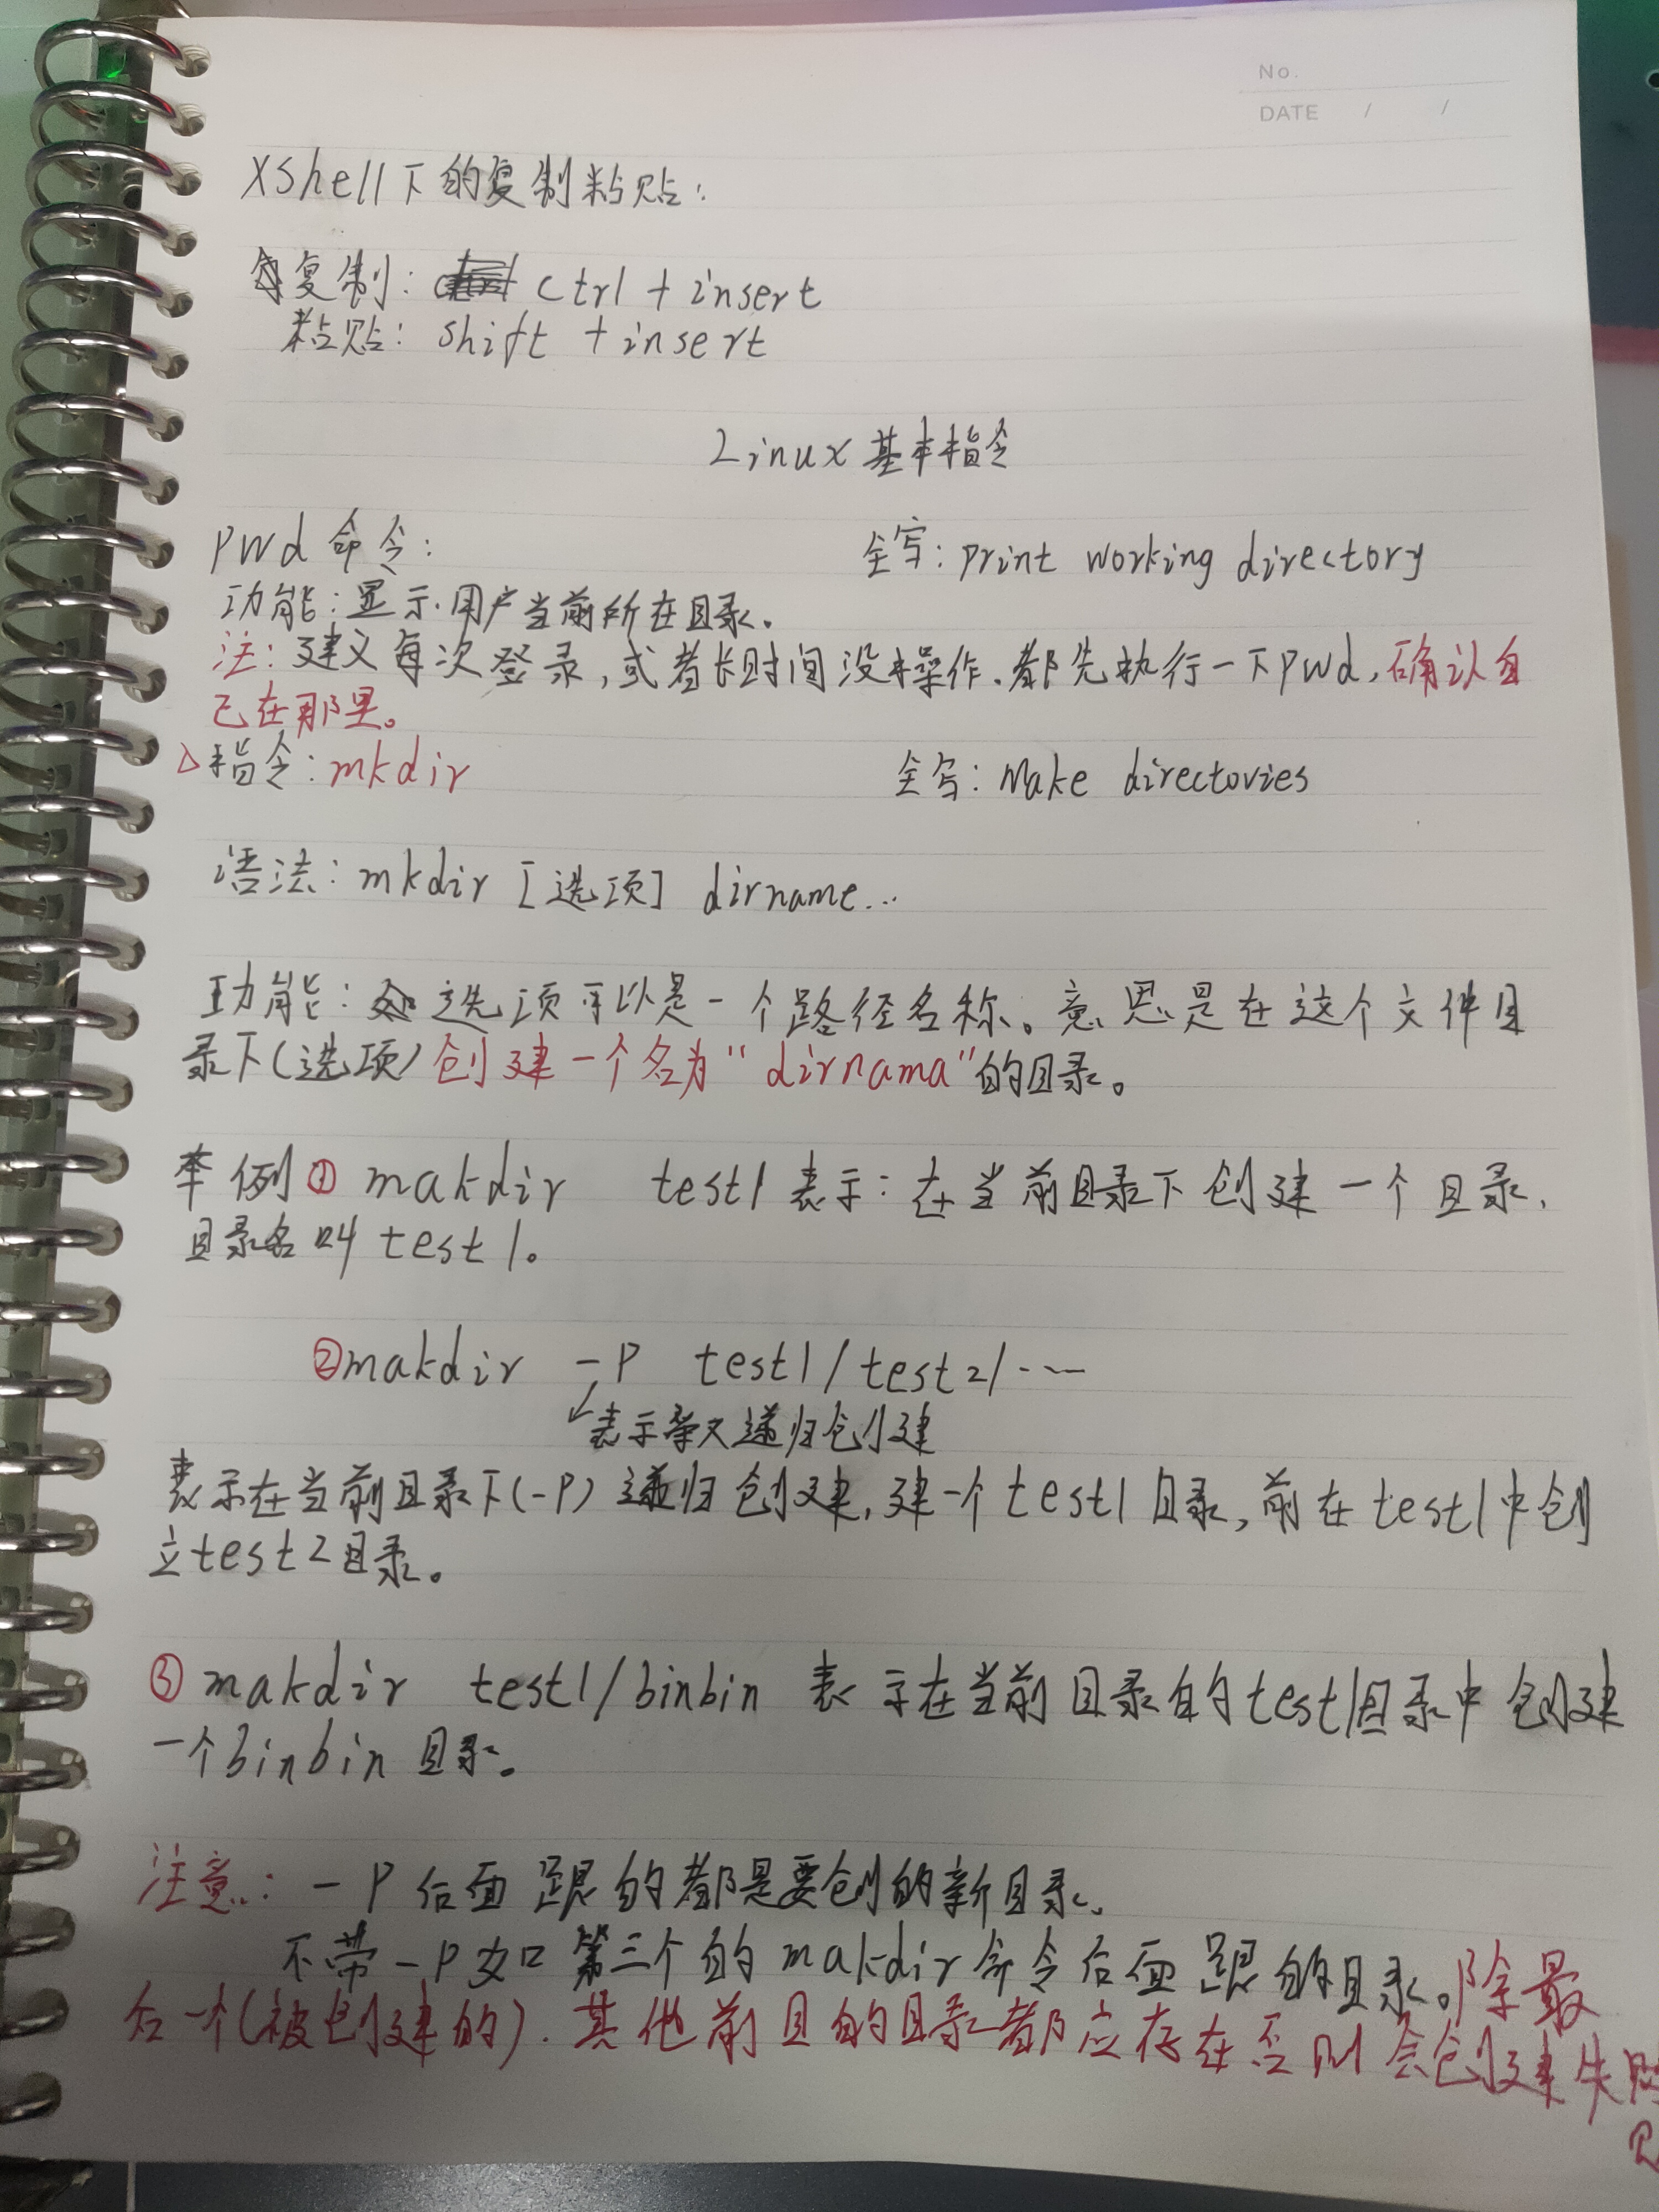 No.
DATE / /
XShell下的复制粘贴：
复制： ctrl + insert
粘贴： shift + insert
Linux 基本指令
pwd 命令： 全写：print working directory
功能：显示用户当前所在目录。
注：建义每次登录，或者长时间没操作.都先执行一下pwd,确认自
己在那里。
△指令：mkdir 全写：Make directories
语法：mkdir [选项] dirname...
功能：选项可以是一个路径名称。意思是在这个文件目
录下(选项)创建一个名为"dirnama"的目录。
举例① makdir test1 表示：在当前目录下创建一个目录.
目录名叫 test1。
②makdir -P test1/test2/……
表示递归创建
表示在当前目录下(-P)递归创建,建一个test1目录,前在test1中创
立test2目录。
③ makdir test1/binbin 表示在当前目录的test1目录中创建
一个binbin目录。
注意：-P后面跟的都是要创的新目录、
不带-P如第三个的makdir命令后面跟的目录。除最
后一个(被创建的).其他前目的目录都应存在否则会创建失败